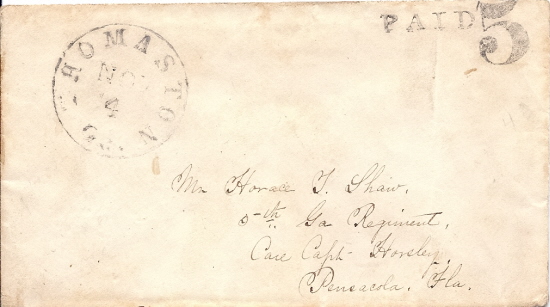 PAID 5
THOMASTON Ga
NOV
4
Mr Horace T. Shaw.
5th. Ga Regiment.
Care Capt Horsley
Pensacola. Fla.